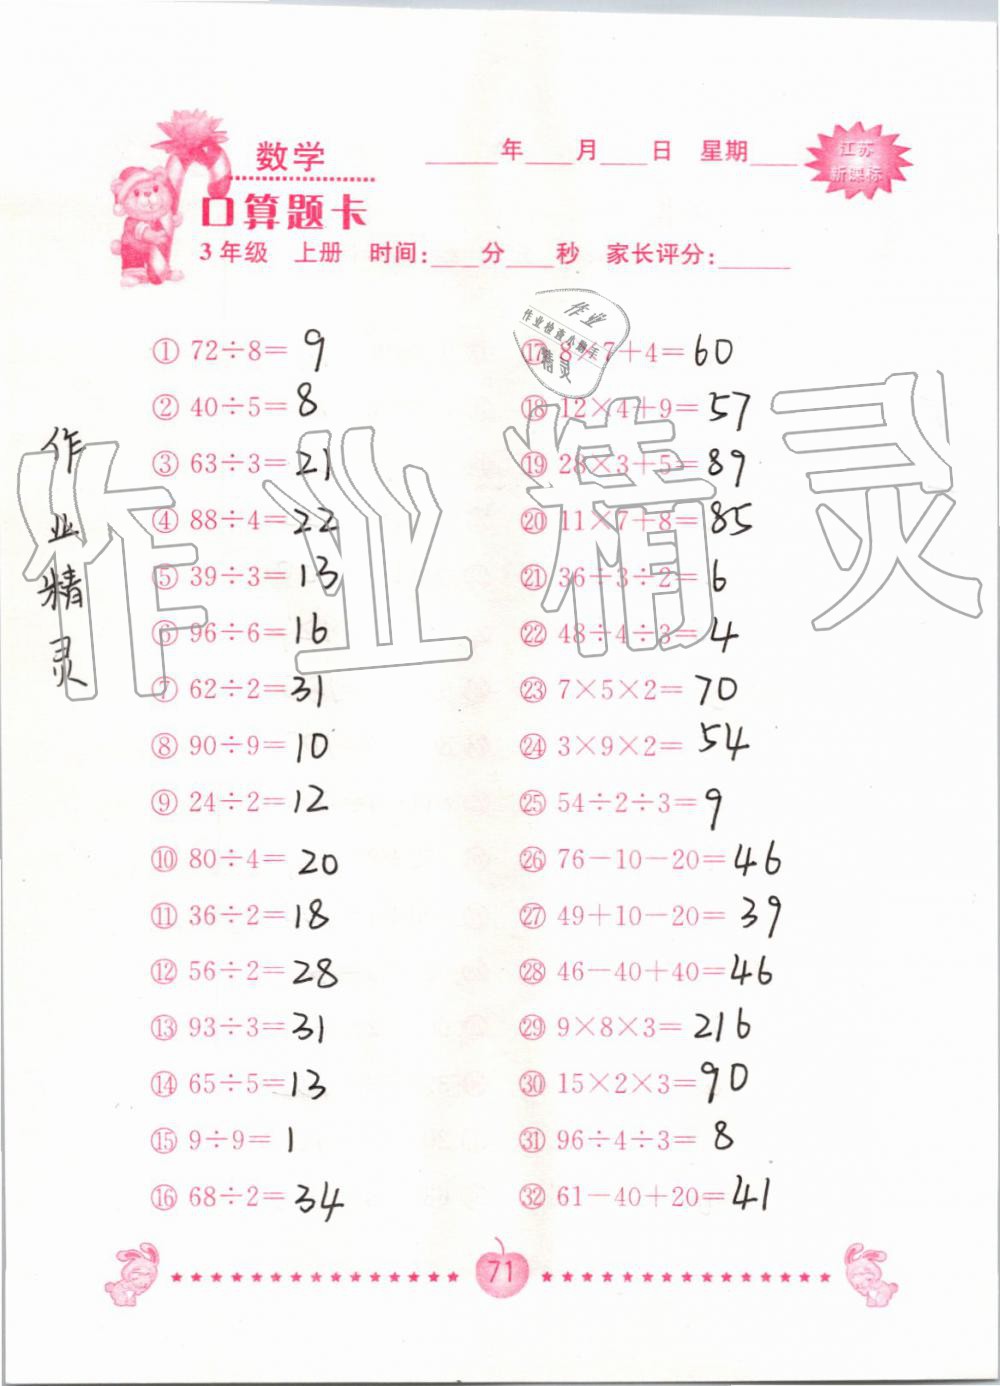 数学
____年____月____日 星期____
江苏
新课标
口算题卡
3年级 上册 时间:____分____秒 家长评分:____
作业
作业检查小助手
精灵
作业精灵
作业精灵
① 72÷8= 9
② 40÷5= 8
③ 63÷3= 21
④ 88÷4= 22
⑤ 39÷3= 13
⑥ 96÷6= 16
⑦ 62÷2= 31
⑧ 90÷9= 10
⑨ 24÷2= 12
⑩ 80÷4= 20
⑪ 36÷2= 18
⑫ 56÷2= 28
⑬ 93÷3= 31
⑭ 65÷5= 13
⑮ 9÷9= 1
⑯ 68÷2= 34
⑰ 8×7+4= 60
⑱ 12×4+9= 57
⑲ 28×3+5= 89
⑳ 11×7+8= 85
㉑ 36÷3÷2= 6
㉒ 48÷4÷3= 4
㉓ 7×5×2= 70
㉔ 3×9×2= 54
㉕ 54÷2÷3= 9
㉖ 76-10-20= 46
㉗ 49+10-20= 39
㉘ 46-40+40= 46
㉙ 9×8×3= 216
㉚ 15×2×3= 90
㉛ 96÷4÷3= 8
㉜ 61-40+20= 41
71